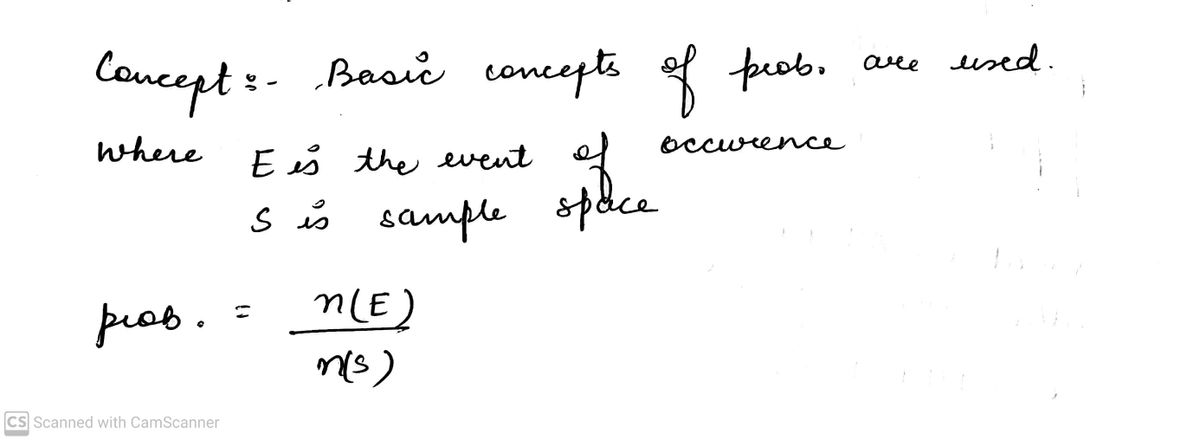 Concept :- Basic concepts of prob. are used.
where E is the event of occurence
S is sample space
prob. = n(E)
n(S)
CS Scanned with CamScanner